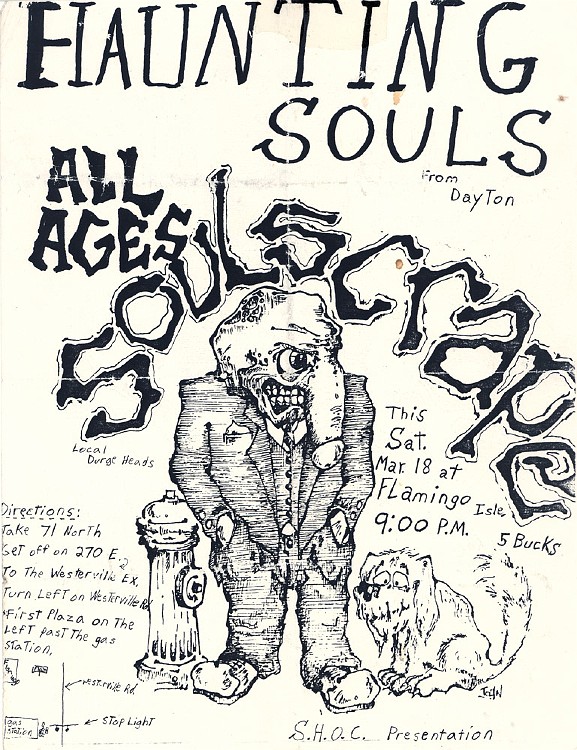 HAUNTING
SOULS
From
Dayton
ALL
AGES
SOULSCRAPE
Local
Durge Heads
This
Sat.
Mar. 18 at
Flamingo
Isle
9:00 P.M.
5 Bucks
Directions:
Take 71 North
Get off on 270 E.
To The Westerville Ex,
Turn Left on Westerville Rd.
First Plaza on The
Left past The gas
Station.
Westerville Rd.
Gas
Station
Stop Light
JOHN
S.H.O.C. Presentation